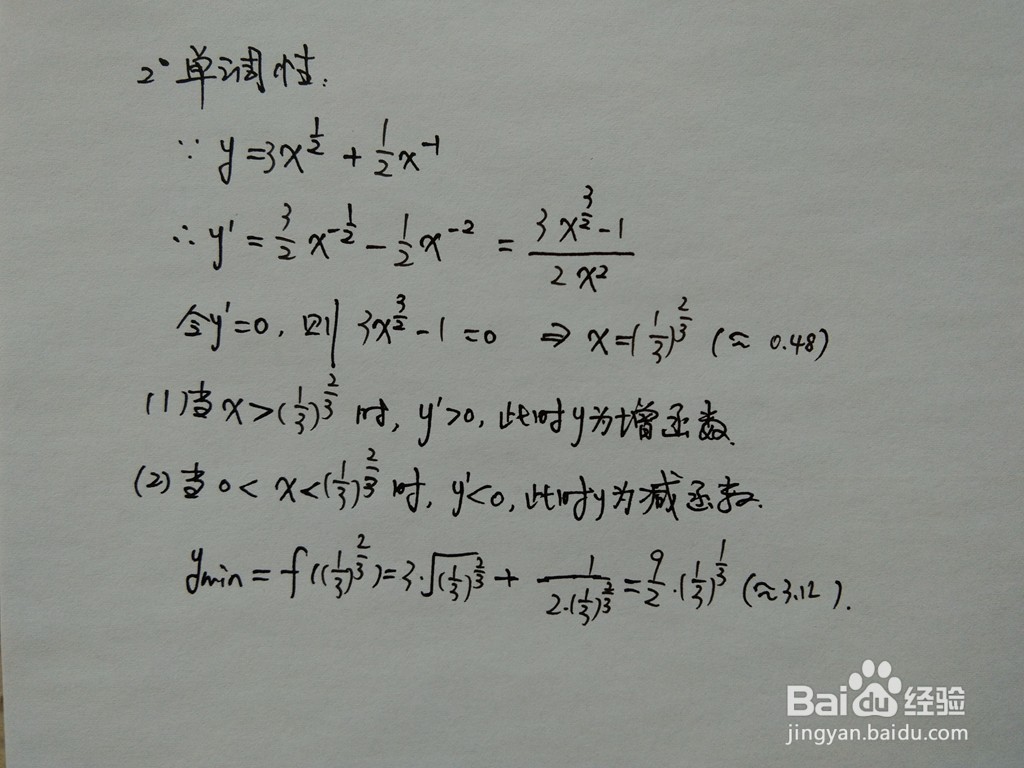 2° 单调性:
∵ y=3x^{\frac{1}{2}} + \frac{1}{2}x^{-1}
∴ y' = \frac{3}{2}x^{-\frac{1}{2}} - \frac{1}{2}x^{-2} = \frac{3x^{\frac{3}{2}}-1}{2x^2}
令y'=0, 则 3x^{\frac{3}{2}}-1=0 ⇒ x=(\frac{1}{3})^{\frac{2}{3}} (≈ 0.48)
(1)当x>(\frac{1}{3})^{\frac{2}{3}}时, y'>0, 此时y为增函数.
(2)当0<x<(\frac{1}{3})^{\frac{2}{3}}时, y'<0, 此时y为减函数.
y_{min} = f((\frac{1}{3})^{\frac{2}{3}})=3·\sqrt{(\frac{1}{3})^{\frac{2}{3}}} + \frac{1}{2·(\frac{1}{3})^{\frac{2}{3}}} = \frac{9}{2}·(\frac{1}{3})^{\frac{1}{3}} (≈3.12).
Bai 经验
jingyan.baidu.com